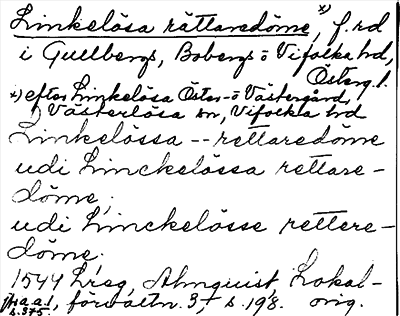 Linkelösa rättaredöme *), f.rd
i Gullbergs, Bobergs o Vifolka hd,
Österg. l.
*) efter Linkelösa Öster- o Västergård,
i Västerlösa sn, Vifolka hd
Linkelössa -- rettaredöme
udi Linckelössa rettare-
döme;
udi Linckelösse rettere-
döme.
1544 Lreg, Almquist, Lokal-
förvaltn. 3, s. 198. orig.
s. 375.